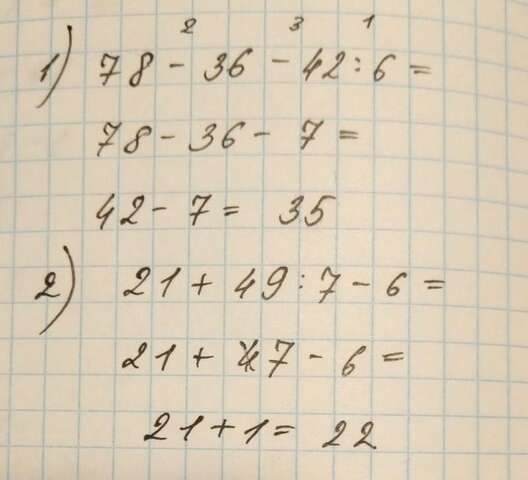 2 3 1
1) 78 - 36 - 42 : 6 =
78 - 36 - 7 =
42 - 7 = 35
2) 21 + 49 : 7 - 6 =
21 + 7 - 6 =
21 + 1 = 22